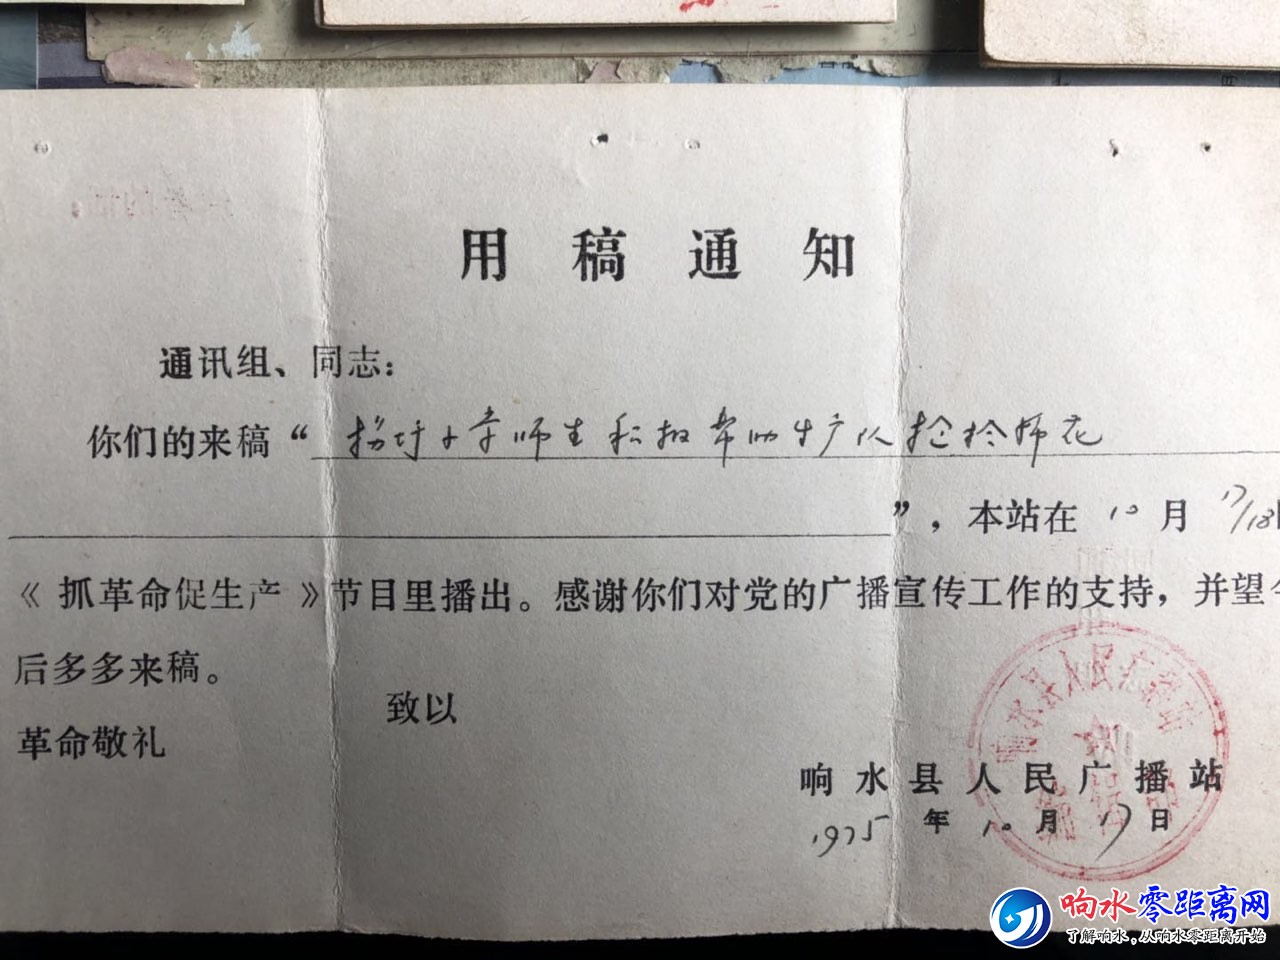 用稿通知
通讯组、同志：
你们的来稿“ 杨圩小学师生积极帮助生产队抢拾棉花
”，本站在 10 月 17/18
《 抓革命促生产 》节目里播出。感谢你们对党的广播宣传工作的支持，并望今
后多多来稿。
致以
革命敬礼
响水县人民广播站
响水县人民广播站
1975 年 10 月 17 日
响水零距离网
了解响水，从响水零距离开始